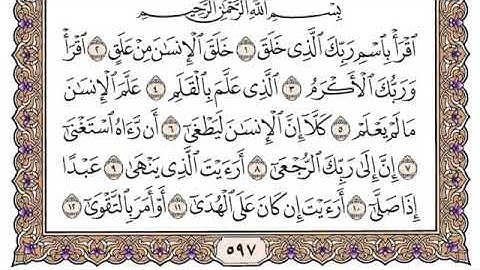 بِسْمِ ٱللَّهِ ٱلرَّحْمَٰنِ ٱلرَّحِيمِ
ٱقْرَأْ بِٱسْمِ رَبِّكَ ٱلَّذِى خَلَقَ ١ خَلَقَ ٱلْإِنسَٰنَ مِنْ عَلَقٍ ٢ ٱقْرَأْ
وَرَبُّكَ ٱلْأَكْرَمُ ٣ ٱلَّذِى عَلَّمَ بِٱلْقَلَمِ ٤ عَلَّمَ ٱلْإِنسَٰنَ
مَا لَمْ يَعْلَمْ ٥ كَلَّآ إِنَّ ٱلْإِنسَٰنَ لَيَطْغَىٰٓ ٦ أَن رَّءَاهُ ٱسْتَغْنَىٰٓ
٧ إِنَّ إِلَىٰ رَبِّكَ ٱلرُّجْعَىٰٓ ٨ أَرَءَيْتَ ٱلَّذِى يَنْهَىٰ ٩ عَبْدًا
إِذَا صَلَّىٰٓ ١٠ أَرَءَيْتَ إِن كَانَ عَلَى ٱلْهُدَىٰٓ ١١ أَوْ أَمَرَ بِٱلتَّقْوَىٰٓ ١٢
٥٩٧